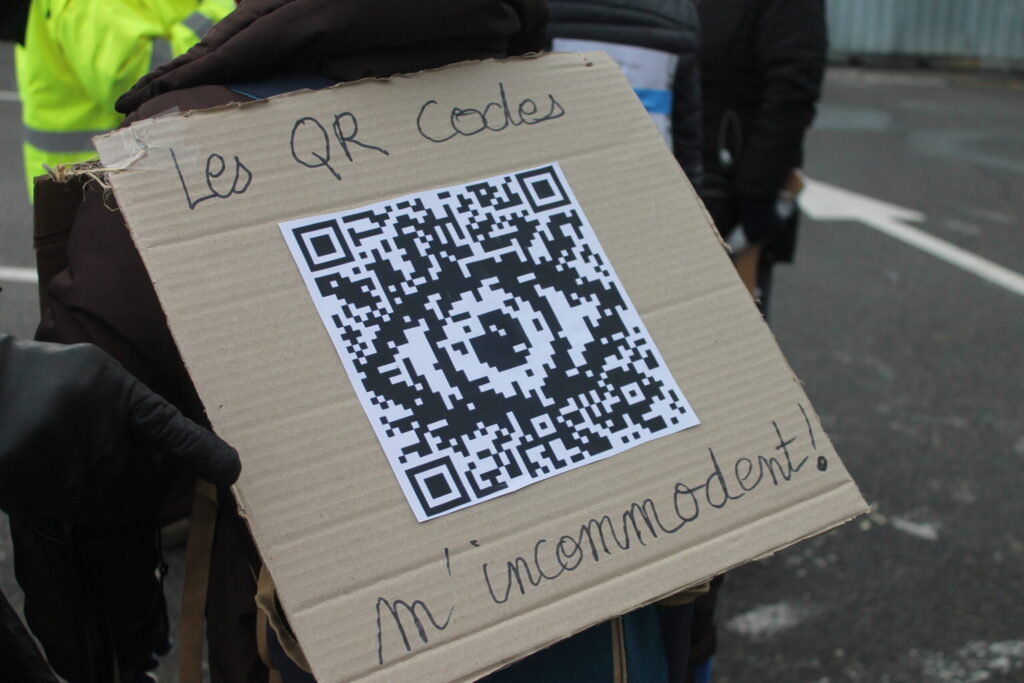 Les QR Codes
m'incommodent!